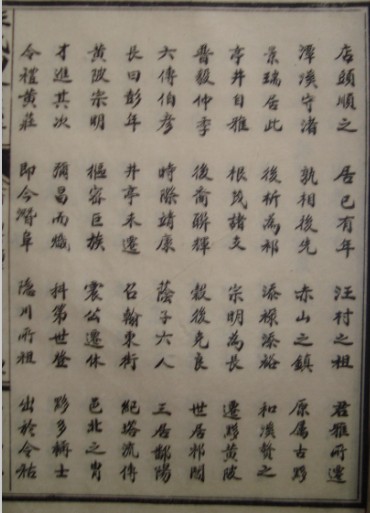 店頭順之 居已有年 汪村之祖 君雅所遷
潭溪守渚 孰相後先 赤山之鎮 原屬古黟
景瑞居此 後析為祁 添祿添裕 和溪賢之
亭井自雅 根茂諸支 宗明為長 遷黟黃陂
晋毅仲季 後裔聯輝 毅後克良 世居祁閶
六傳伯彥 時際靖康 蔭子六人 三居鄱陽
長曰彭年 井亭未遷 召翰東街 紀塔流傳
黃陂宗明 樞密巨族 震公遷休 邑北之胄
才進其次 彌昌而熾 科第世登 黟多稱士
令禮黃莊 即今潛阜 隱川所祖 出於令祐